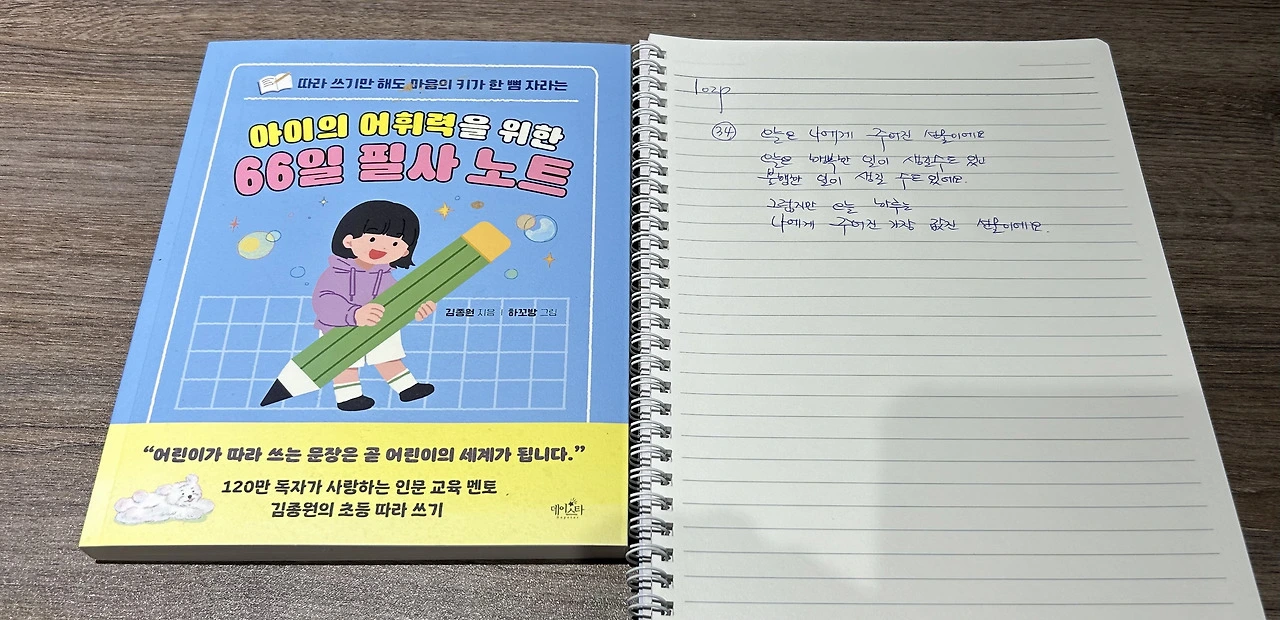 따라 쓰기만 해도 마음의 키가 한 뼘 자라는
아이의 어휘력을 위한
66일 필사 노트
김종원 지음 | 하꼬방 그림
“어린이가 따라 쓰는 문장은 곧 어린이의 세계가 됩니다.”
120만 독자가 사랑하는 인문 교육 멘토
김종원의 초등 따라 쓰기
데이스타
102p
34 오늘은 나에게 주어진 선물이에요
오늘은 행복한 일이 생길수도 있고
불행한 일이 생길 수도 있어요.
그렇지만 오늘 하루는
나에게 주어진 가장 값진 선물이에요.